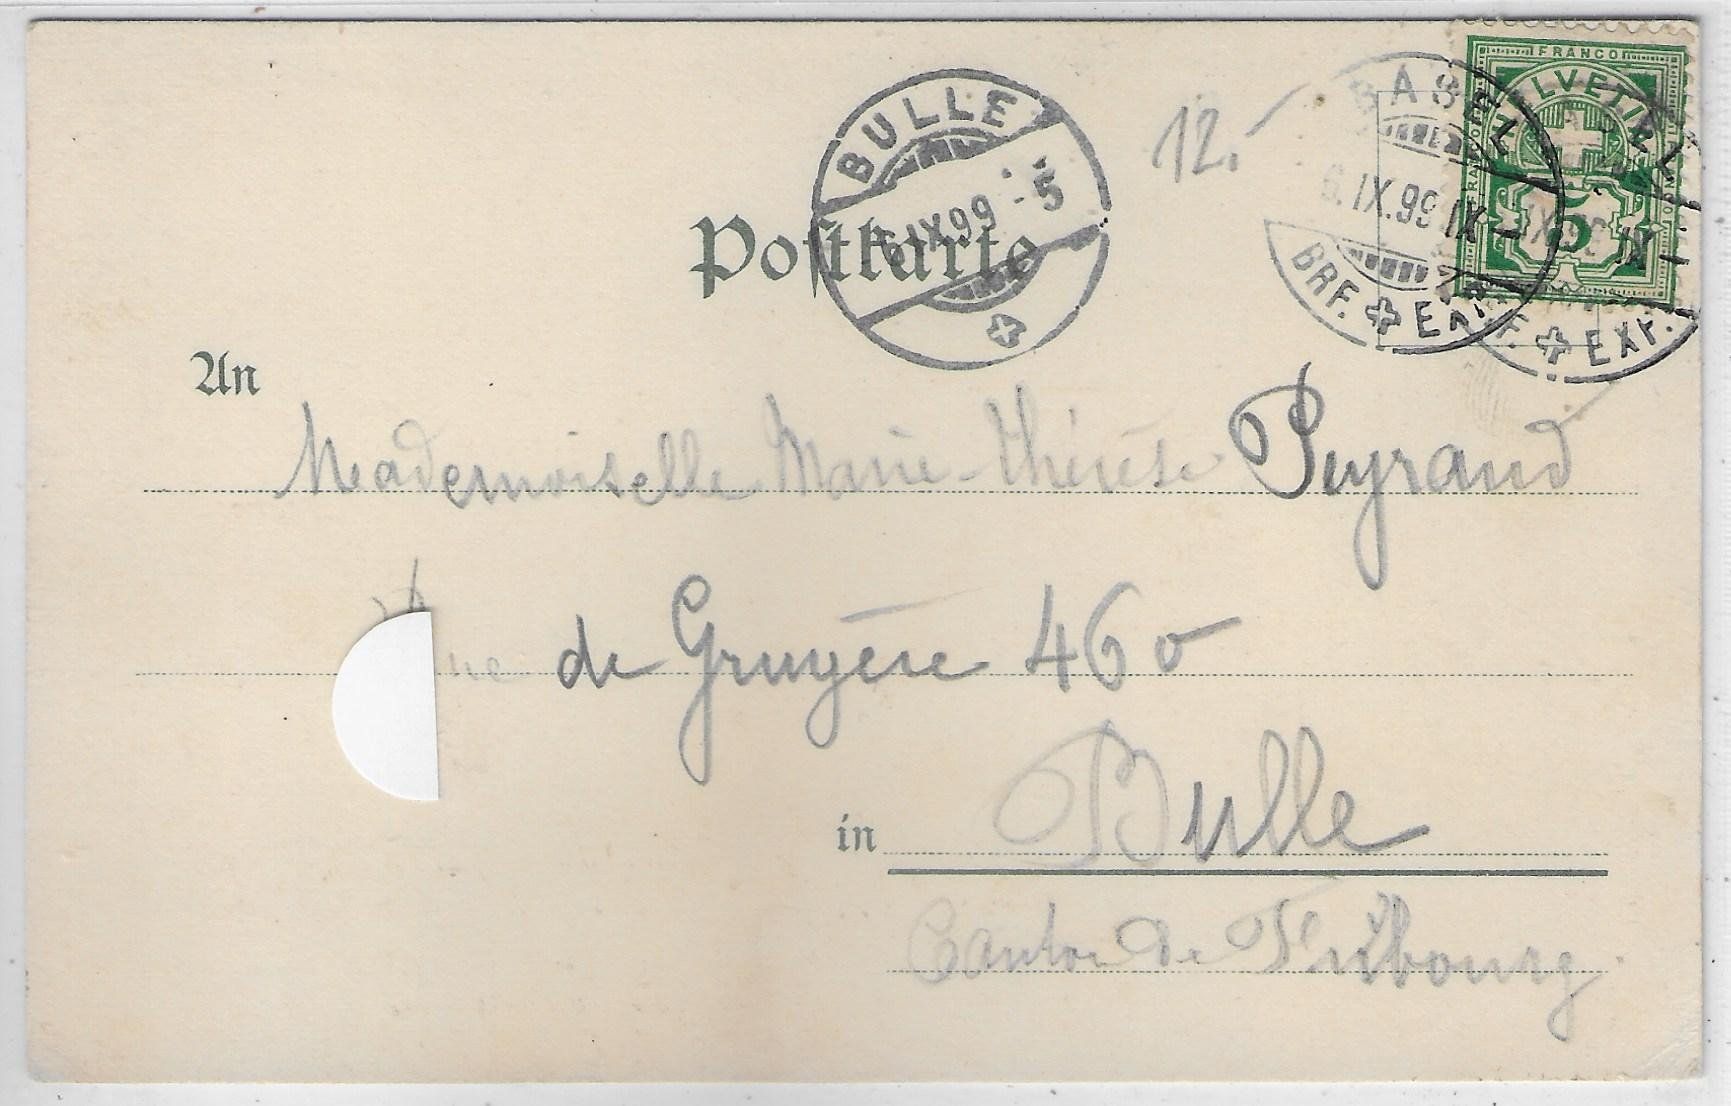 FRANCO
HELVETIA
5
BASEL
6.IX.99
BRF. EXP.
BULLE
6.IX.99 - 5
12.-
Postkarte
An
Mademoiselle Marie-Thérèse Peyraud
Rue de Gruyère 460
in Bulle
Canton de Fribourg